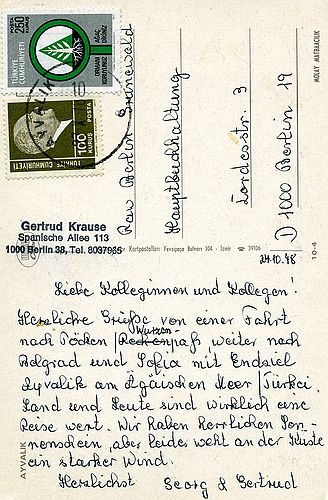 POSTA 250 KURUŞ
TÜRKİYE CUMHURİYETİ
ORMAN AĞAÇ
KORUYUNUZ DİKİNİZ
AYVALIK
100
KURUŞ POSTA
TÜRKİYE CUMHURİYETİ
Raw Berlin-Grunewald
Hauptbuchhaltung
Cordesstr. 3
D 1000 Berlin 19
MOLAY MATBAACILIK
Gertrud Krause
Spanische Allee 113
1000 Berlin 38, Tel. 8037935
Kartpostalları Fevzipaşa Bulvarı 304 - İzmir ☎ 39106
10-4
24.10.78
Liebe Kolleginnen und Kollegen!
Herzliche Grüße von einer Fahrt
Wurzen-
nach Töcken / paß weiter nach
Belgrad und Sofia mit Endziel
Ayvalik am Ägäischen Meer / Türkei.
Land und Leute sind wirklich eine
Reise wert. Wir haben herrlichen Son-
nenschein, aber leider weht an der Küste
ein starker Wind.
Herzlichst Georg & Gertrud
AYVALIK